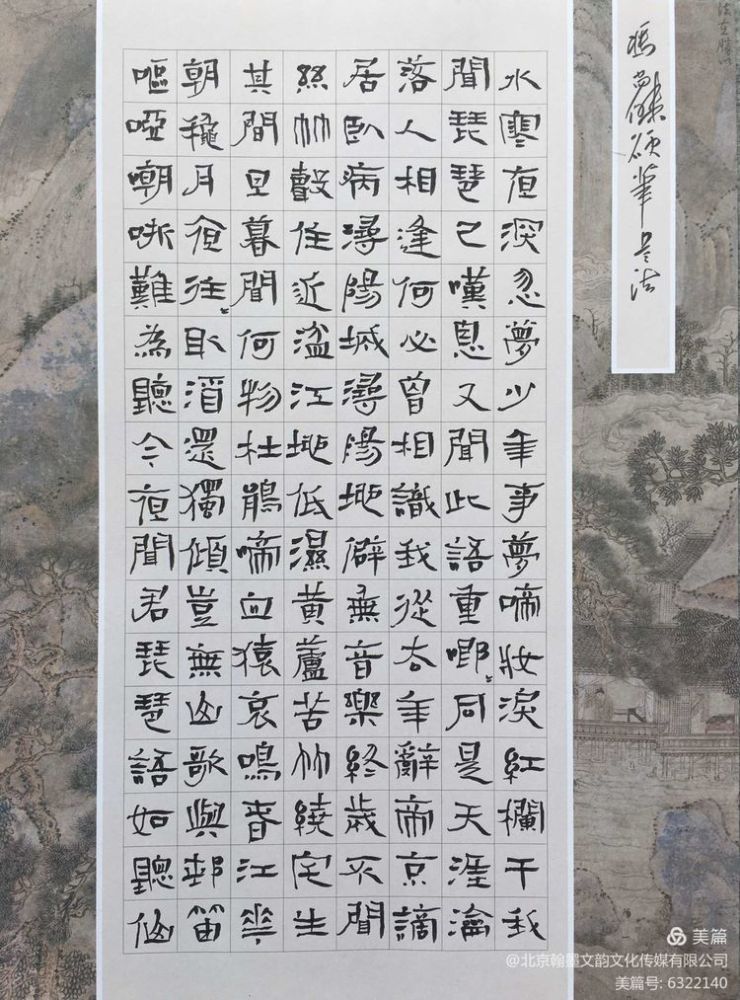 水寒夜深忽夢少年事夢啼妝淚紅欄干我
聞琵琶已嘆息又聞此語重唧〻同是天涯淪
落人相逢何必曾相識我從去年辭帝京謫
居臥病潯陽城潯陽地僻無音樂終歲不聞
絲竹聲住近湓江地低濕黃蘆苦竹繞宅生
其間旦暮聞何物杜鵑啼血猿哀鳴春江花
朝龝月夜往〻取酒還獨傾豈無山歌與邨笛
嘔啞嘲哳難為聽今夜聞君琵琶語如聽仙
美篇
@北京翰盟文韵文化传媒有限公司
美篇号: 6322140